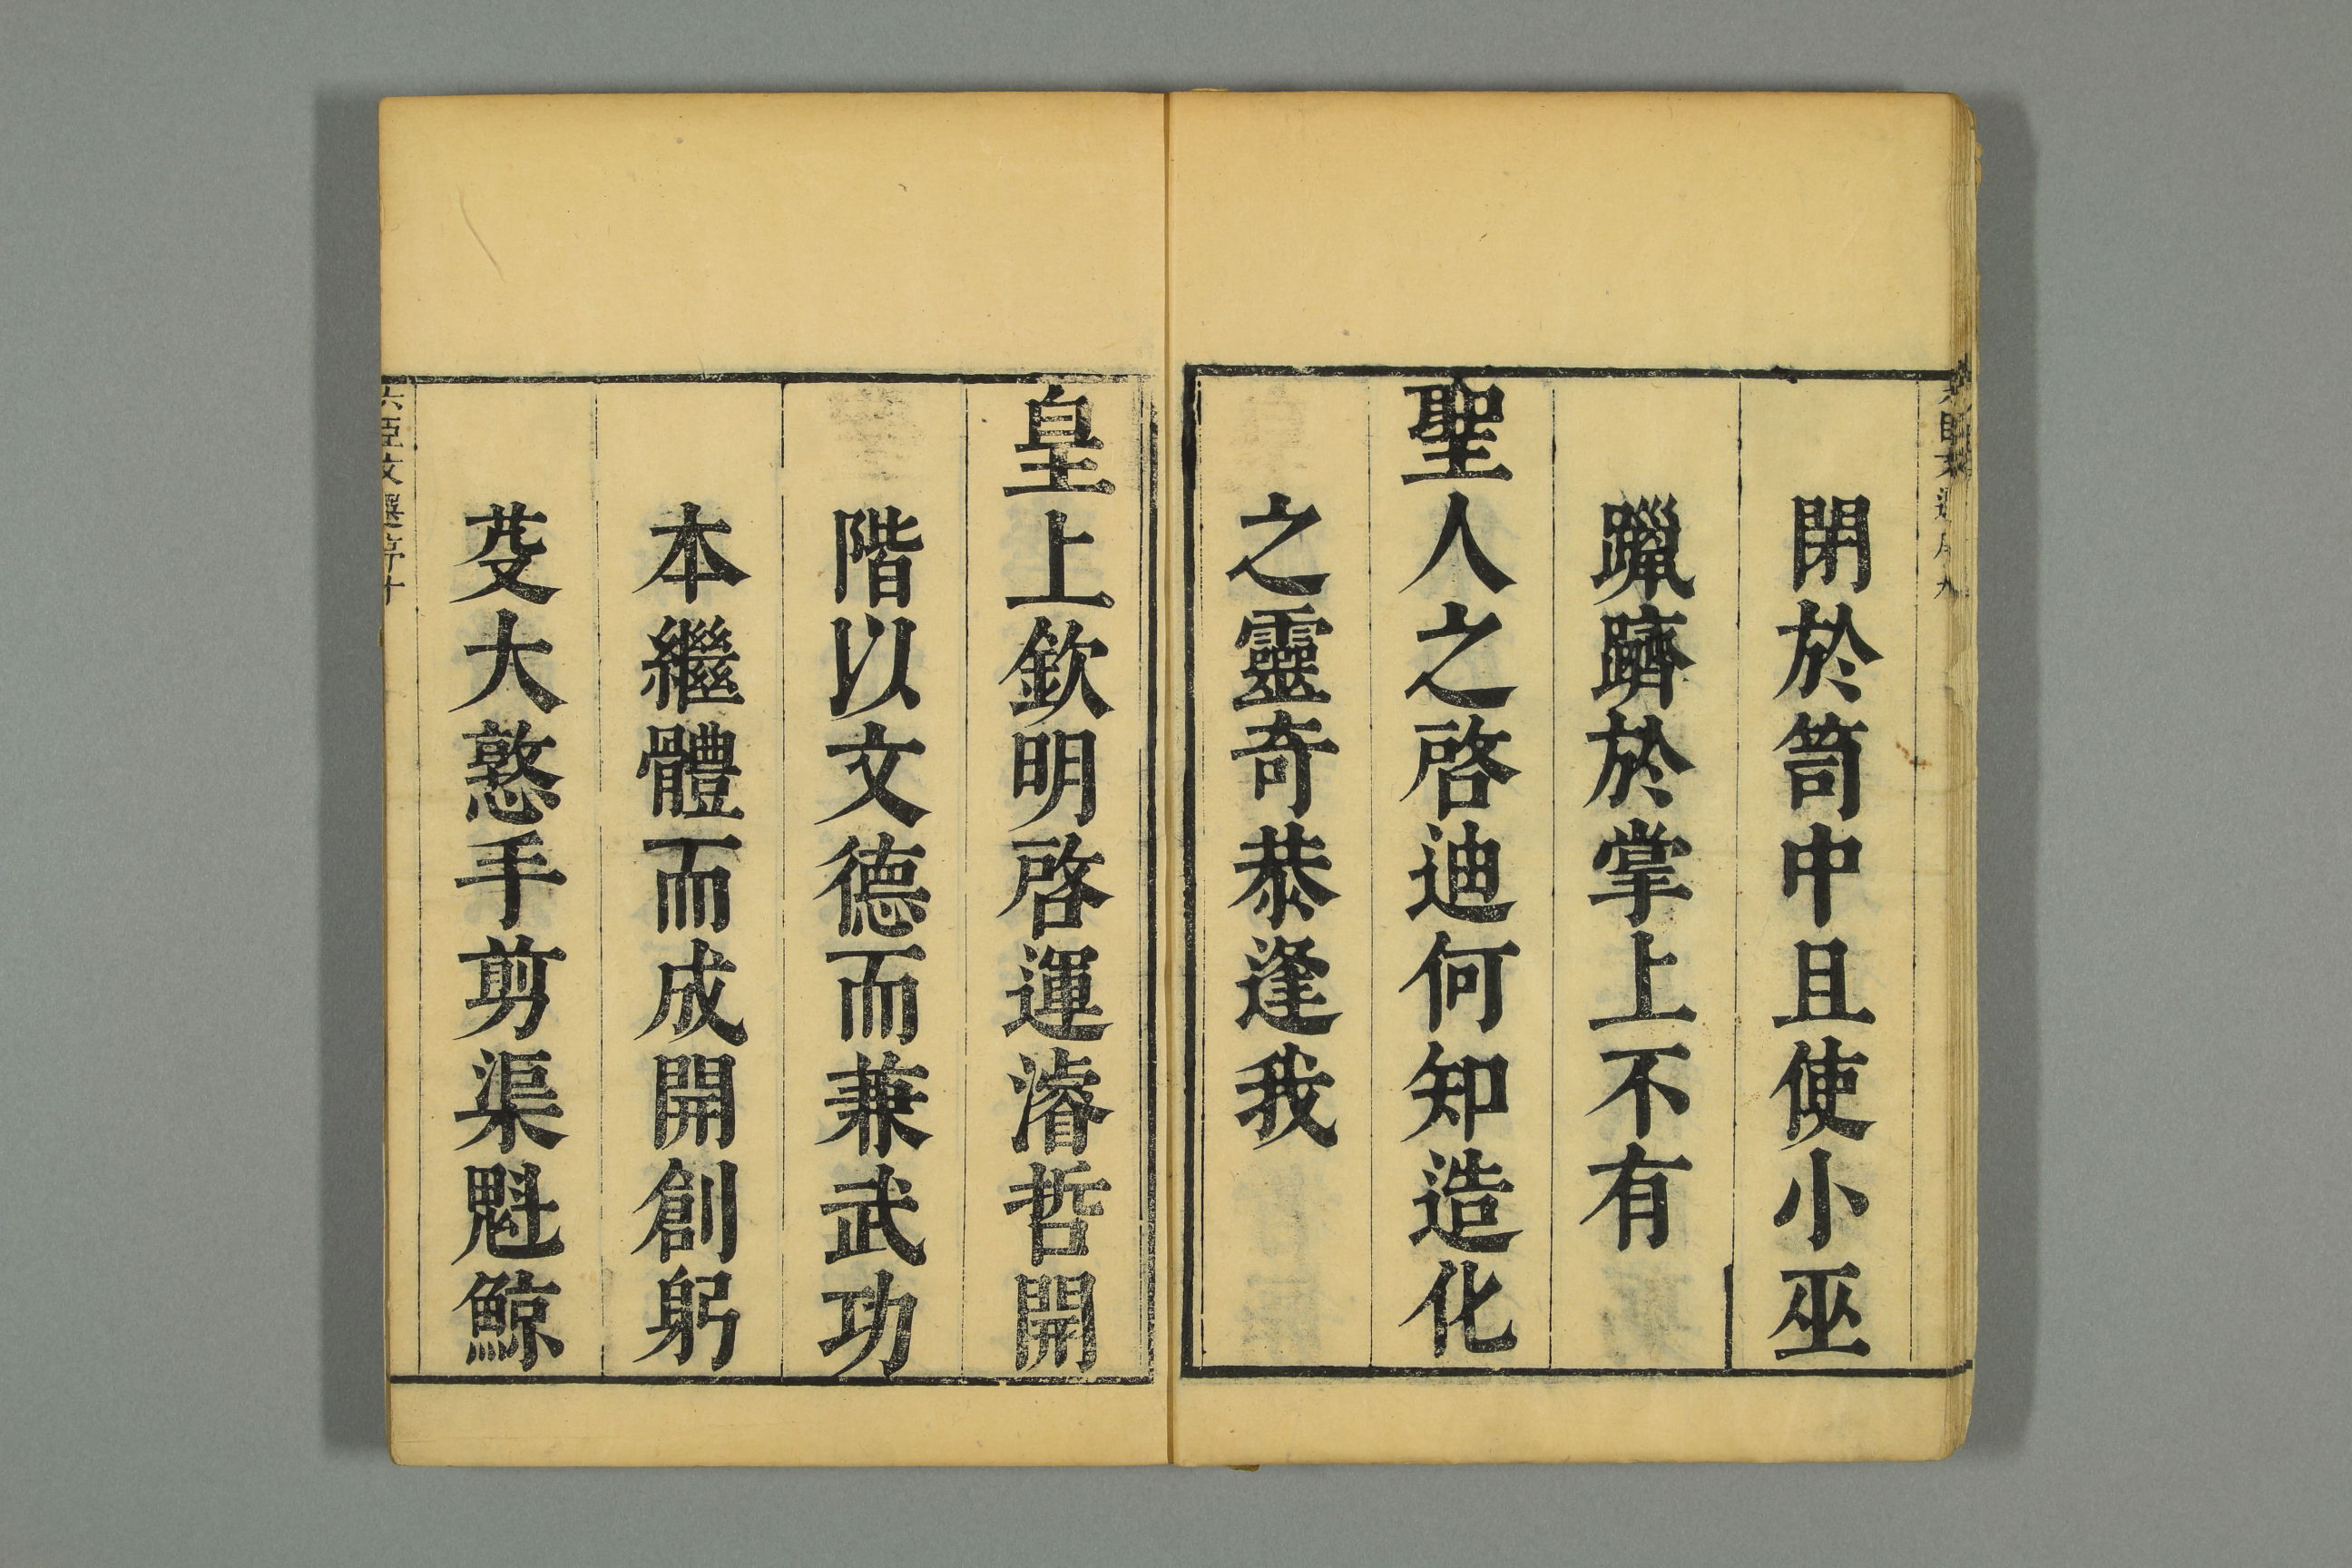 閉於笥中且使小巫
躐躋於掌上不有
聖人之啓迪何知造化
之靈奇恭逢我
皇上欽明啓運濬哲開
階以文德而兼武功
本繼體而成開創躬
芟大憝手剪渠魁鯨